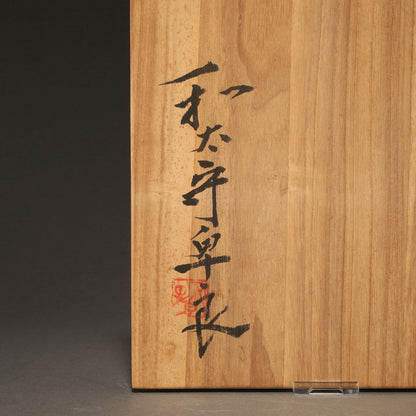 和太守卑良